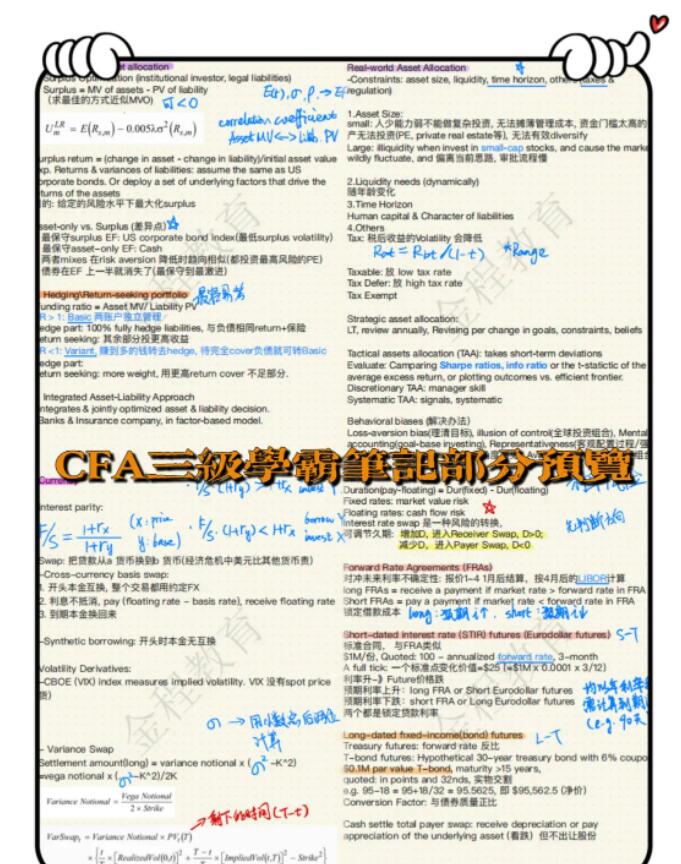 et allocation
Surplus Optimization (institutional investor, legal liabilities)
Surplus = MV of assets - PV of liability
(求最佳的方式近似MVO)
correlation coefficient
Asset MV <-> Liab. PV
urplus return = (change in asset - change in liability)/initial asset value
xp. Returns & variances of liabilities: assume the same as US
orporate bonds. Or deploy a set of underlying factors that drive the
turns of the assets
的: 给定的风险水平下最大化surplus
sset-only vs. Surplus (差异点)
最保守surplus EF: US corporate bond index(最低surplus volatility)
最保守asset-only EF: Cash
两者mixes 在risk aversion 降低时趋向相似(都投资最高风险的PE)
债券在EF 上一半就消失了(最保守到最激进)
Hedging\Return-seeking portfolio
unding ratio = Asset MV/ Liability PV
R > 1: Basic 两账户独立管理
edge part: 100% fully hedge liabilities, 与负债相同return+保险
eturn seeking: 其余部分投更高收益
R <1: Variant, 赚到多的钱转去hedge, 待完全cover负债就可转Basic
edge part:
eturn seeking: more weight, 用更高return cover 不足部分.
Integrated Asset-Liability Approach
ntegrates & jointly optimized asset & liability decision.
Banks & Insurance company, in factor-based model.
Real-world Asset Allocation
-Constraints: asset size, liquidity, time horizon, other (taxes &
regulation)
1.Asset Size:
small: 人少能力弱不能做复杂投资, 无法摊薄管理成本, 资金门槛太高的
产无法投资(PE, private real estate等), 无法有效diversify
Large: illiquidity when invest in small-cap stocks, and cause the marke
wildly fluctuate, and 偏离当前思路, 审批流程慢
2.Liquidity needs (dynamically)
随年龄变化
3.Time Horizon
Human capital & Character of liabilities
4.Others
Tax: 税后收益的Volatility 会降低
Rat = Rbt/(1-t) *Range
Taxable: 放 low tax rate
Tax Defer: 放 high tax rate
Tax Exempt
Strategic asset allocation:
LT, review annually, Revising per change in goals, constraints, beliefs
Tactical assets allocation (TAA): takes short-term deviations
Evaluate: Camparing Sharpe ratios, info ratio or the t-statistic of the
average excess return, or plotting outcomes vs. efficient frontier.
Discretionary TAA: manager skill
Systematic TAA: signals, systematic
Behavioral biases (解决办法)
Loss-aversion bias(理清目标), illusion of control(全球投资组合), Mental
accounting(goal-base investing), Representativeness(客观配置过程/强
CFA三級學霸筆記部分預覽
Currency
nterest parity:
F/S = 1+rx / 1+ry (x: price y: base) · F/S · (1+ry) < 1+rx
Swap: 把贷款从a 货币换到b 货币(经济危机中美元比其他货币贵)
-Cross-currency basis swap:
1. 开头本金互换, 整个交易都用约定FX
2. 利息不抵消, pay (floating rate – basis rate), receive floating rate
3. 到期本金换回来
-Synthetic borrowing: 开头时本金无互换
Volatility Derivatives:
-CBOE (VIX) index measures implied volatility. VIX 没有spot price
货)
- Variance Swap
Settlement amount(long) = variance notional x (σ² -K^2)
=vega notional x (σ²-K^2)/2K
Variance Notional = Vega Notional / 2 × Strike
剩下的时间(T-t)
VarSwap_t = Variance Notional × PV_t(T)
× {t/T × [RealizedVol(0,t)]² + T-t/T × [ImpliedVol(t,T)]² - Strike²}
Duration(pay-floating) = Dur(fixed) - Dur(floating)
Fixed rates: market value risk
Floating rates: cash flow risk
Interest rate swap 是一种风险的转换,
可调节久期: 增加D, 进入Receiver Swap, D>0;
减少D, 进入Payer Swap, D<0
先判断方向
Forward Rate Agreements (FRAs)
对冲未来利率不确定性: 报价1~4 1月后结算, 按4月后的LIBOR计算
long FRAs = receive a payment if market rate > forward rate in FRA
Short FRAs = pay a payment if market rate < forward rate in FRA
锁定借款成本 long: 预期i↑, short: 预期i↓
Short-dated interest rate (STIR) futures (Eurodollar futures) S-T
标准合同, 与FRA类似
$1M/份, Quoted: 100 - annualized forward rate, 3-month
A full tick: 一个标准点变化价值=$25 (=$1M x 0.0001 x 3/12)
利率升-》Future价格跌
预期利率上升: long FRA or Short Eurodollar futures
预期利率下跌: short FRA or Long Eurodollar futures
两个都是锁定贷款利率
Long-dated fixed-income(bond) futures L-T
Treasury futures: forward rate 反比
T-bond futures: Hypothetical 30-year treasury bond with 6% coupo
$0.1M par value T-bond, maturity >15 years,
quoted: in points and 32nds, 实物交割
e.g. 95-18 = 95+18/32 = 95.5625, 即 $95,562.5 (净价)
Conversion Factor: 与债券质量正比
Cash settle total payer swap: receive depreciation or pay
appreciation of the underlying asset (看跌) 但不出让股份